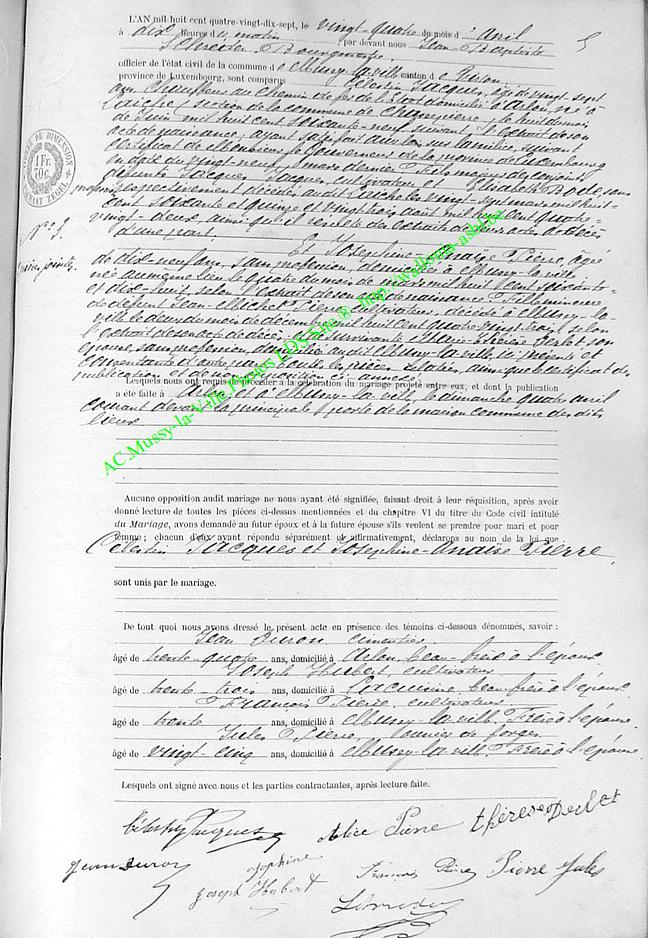 L'AN mil huit cent quatre-vingt-dix-sept, le vingt-quatre du mois d'avril
à dix heures du matin, par devant nous Jean-Baptiste
Schreder Bourgmestre
officier de l'état civil de la commune de Mussy-la-ville canton de Virton,
province de Luxembourg, sont comparus Célestin Jacques, âgé de vingt-sept
ans Chauffeur au chemin de fer de l'Etat domicilié à Arlon, né à
section de la commune de le huit du mois
de Juin mil huit cent soixante-neuf suivant l'extrait de son
acte de naissance; ayant satisfait aux lois sur la milice, suivant
certificat de Monsieur le Gouverneur de la province de Luxembourg
en date du vingt-neuf mars dernier Fils majeur des conjoints
Jacques Jacques, cultivateur et Elisabeth sans
profession respectivement décédés audit le vingt-sept mars mil huit-
cent soixante et quinze et vingt trois août mil huit cent quatre-
vingt-deux, ainsi qu'il résulte des extraits de leurs actes de décès
d'une part
N° 5
5
Et Joséphine Anaïse Pierre, âgée
de dix-neuf ans, sans profession, domiciliée à Mussy-la-ville
née au même lieu le quatre du mois de mars mil huit cent soixante-
et dix-huit, selon l'extrait de son acte de naissance Fille mineure
de défunt Jean-Michel Pierre cultivateur, décédé à Mussy-la-
ville le deux du mois de décembre mil huit cent quatre vingt trois, selon
l'extrait de son acte de décès et survivante Marie-Thérèse son
épouse, sans profession, domiciliée audit Mussy-la-ville, ici présente et
consentante d'autre part toutes les pièces relatées, ainsi que le certificat de
publication et de non opposition ci annexé
Lesquels nous ont requis de procéder à la célébration du mariage projeté entre eux, et dont la publication
a été faite à Arlon et à Mussy-la-ville, le dimanche quatre avril
courant devant la principale porte de la maison commune des dits
lieux
Aucune opposition audit mariage ne nous ayant été signifiée, faisant droit à leur réquisition, après avoir
donné lecture de toutes les pièces ci-dessus mentionnées et du chapitre VI du titre du Code civil intitulé
du Mariage, avons demandé au futur époux et à la future épouse s'ils veulent se prendre pour mari et pour
femme ; chacun d'eux ayant répondu séparément et affirmativement, déclarons au nom de la loi que
Célestin Jacques et Joséphine-Anaïse Pierre
sont unis par le mariage.
De tout quoi nous avons dressé le présent acte en présence des témoins ci-dessous dénommés, savoir :
Jean Duron
âgé de trente-quatre ans, domicilié à Arlon, beau-frère à l'époux
Joseph Hubert, cultivateur
âgé de trente-trois ans, domicilié à beau frère à l'époux
François Pierre, cultivateur
âgé de trente ans, domicilié à Mussy-la-ville Frère à l'épouse
Jules Pierre, ouvrier de forges
âgé de vingt-cinq ans, domicilié à Mussy-la-ville Frère à l'épouse
Lesquels ont signé avec nous et les parties contractantes, après lecture faite.
Célestin Jacques Alice Pierre Thérèse
Jean Duron Joséphine François Pierre Pierre Jules
Joseph Hubert
AC.Mussy-la-Ville.Photos LDS-Site ® http://wallonia-asbl.be
1 FR.
70 C.